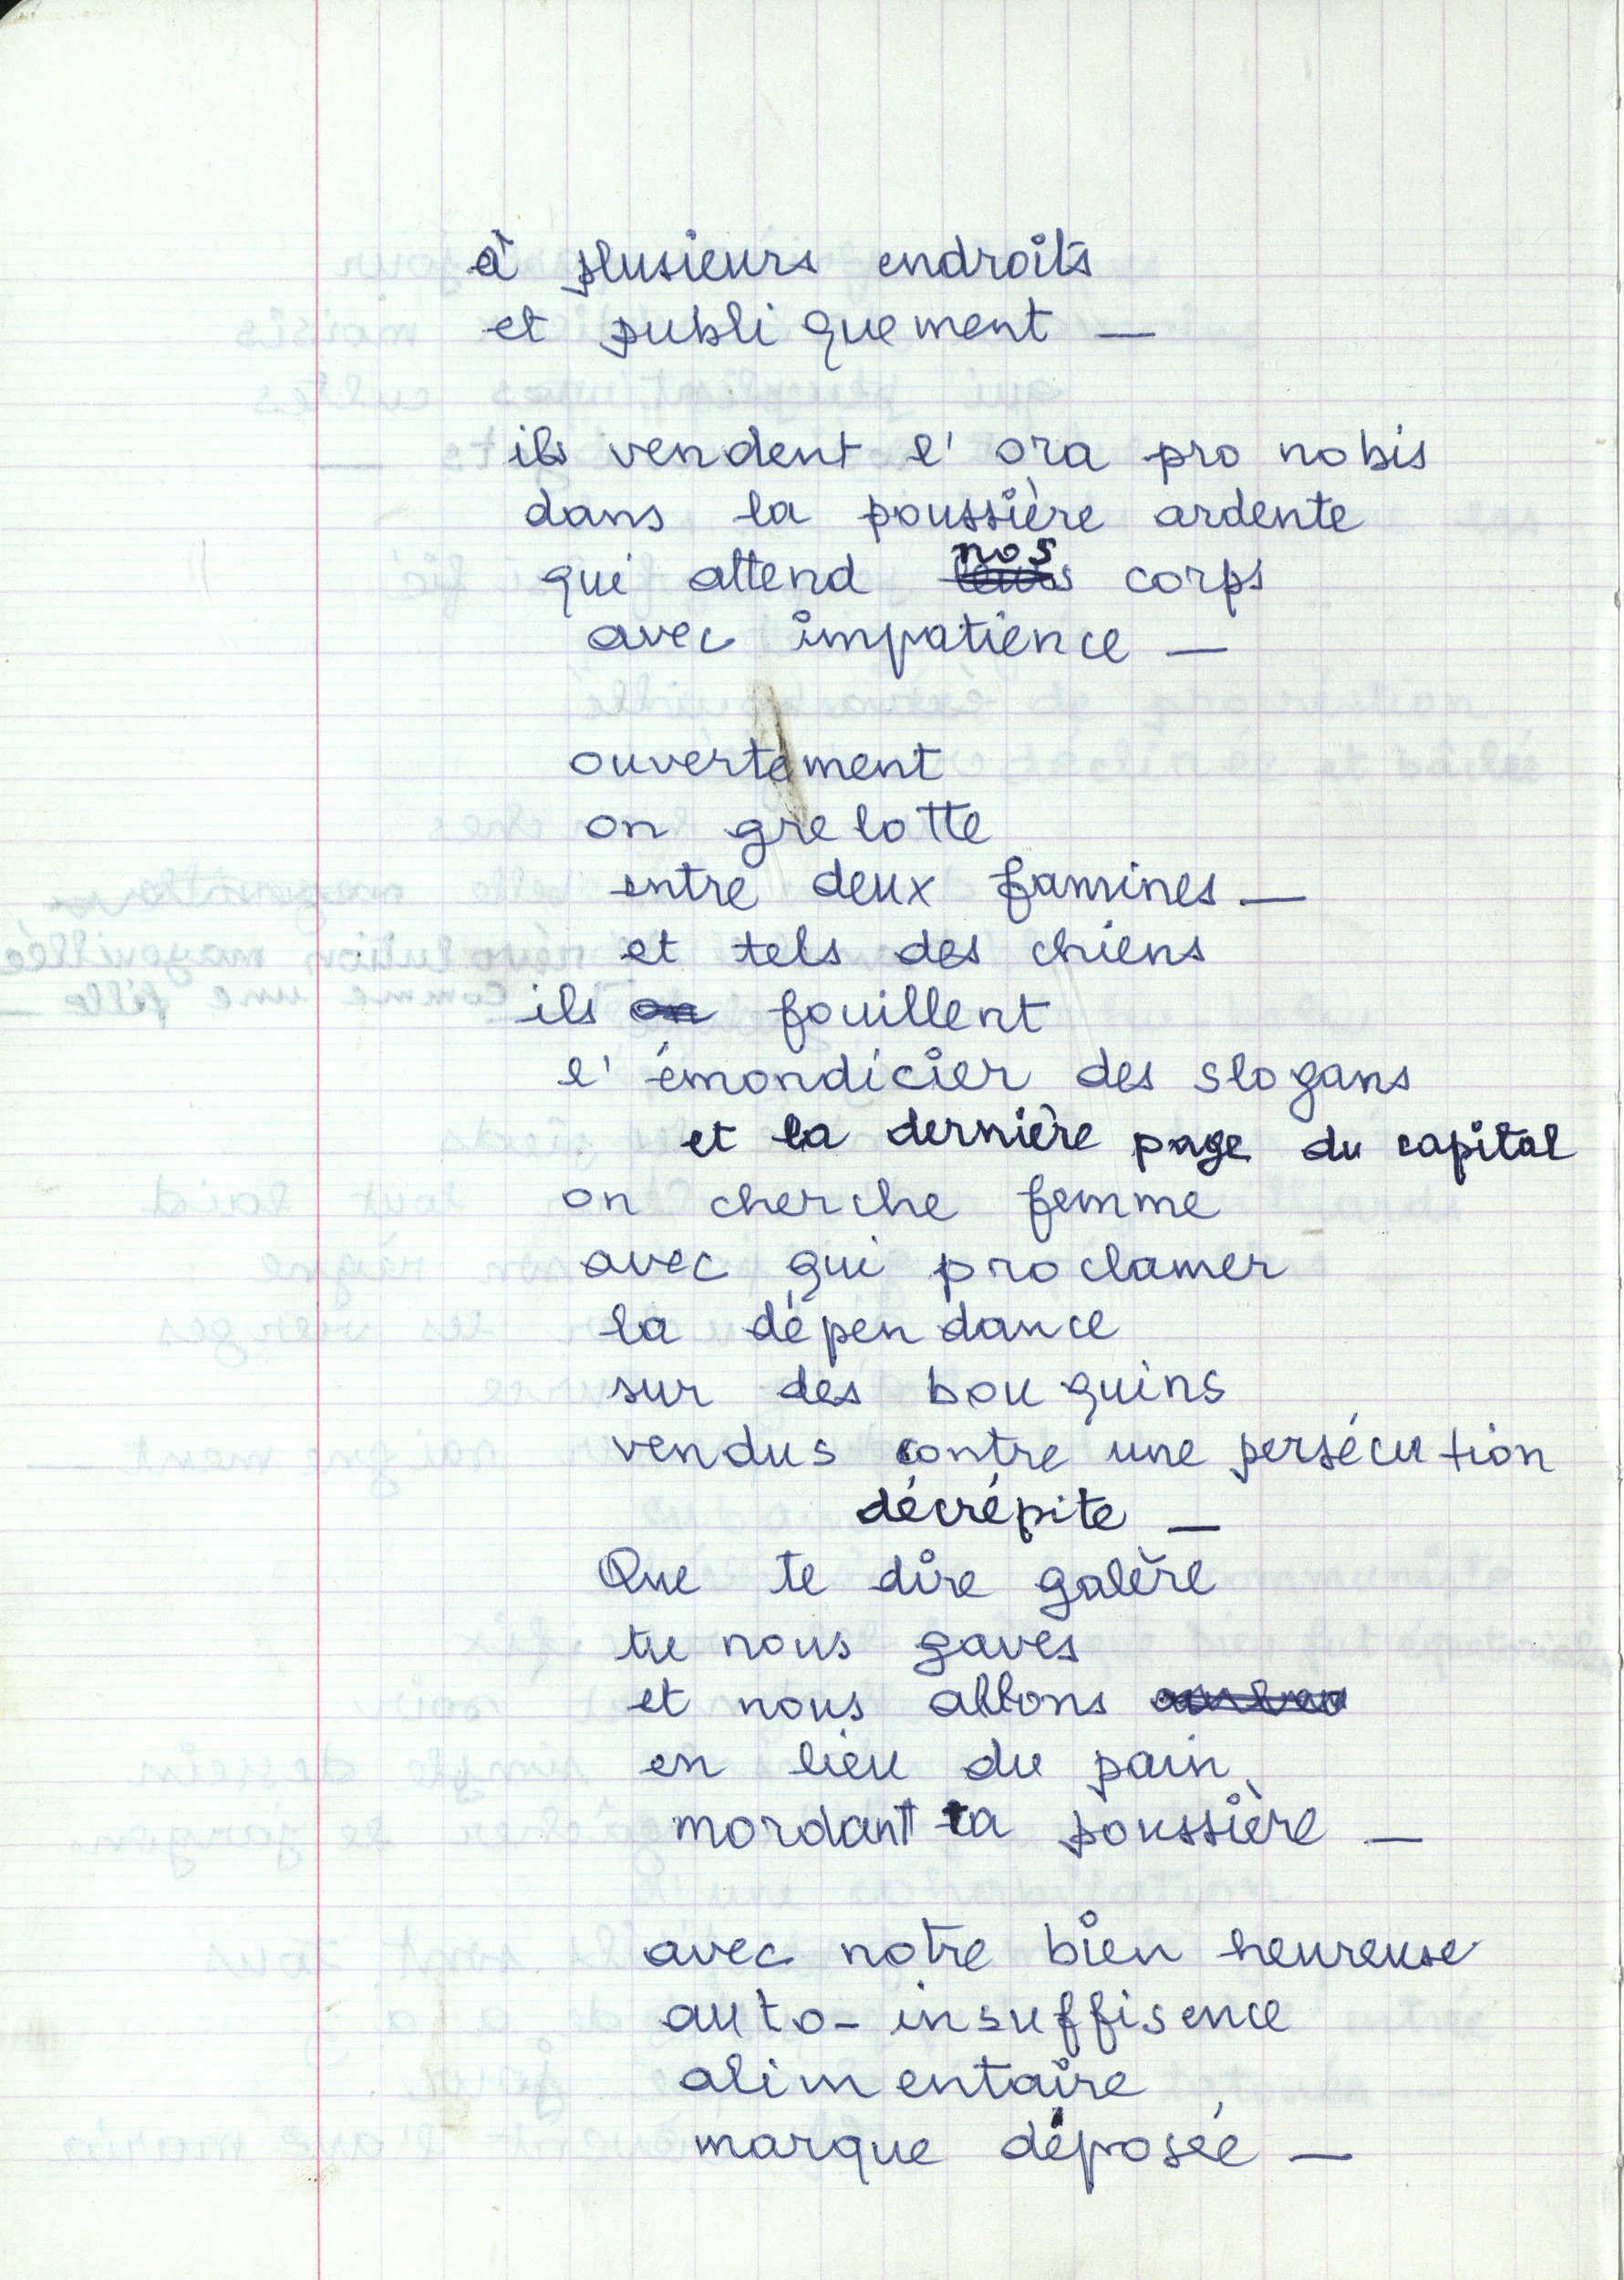 à plusieurs endroits
et publiquement —
ils vendent l'ora pro nobis
dans la poussière ardente
qui attend nos corps
avec impatience —
ouvertement
on grelotte
entre deux famines —
et tels des chiens
ils on fouillent
l'émondicier des slogans
et la dernière page du capital
on cherche femme
avec qui proclamer
la dépendance
sur des bouquins
vendus contre une persécution
décrépite —
Que te dire galère
tu nous gaves
et nous allons
en lieu du pain
mordant ta poussière —
avec notre bien heureuse
auto-insuffisence
alimentaire
marque déposée —